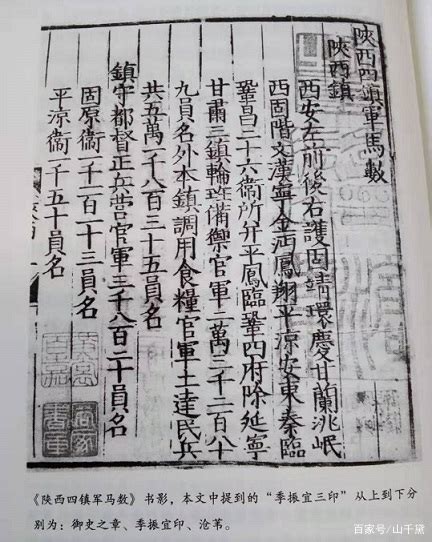 陝西四鎮軍馬數
陝西鎮
西安左前後右護固靖環慶甘蘭洮岷
西固階文漢寧金沔鳳翔平凉安東秦臨
鞏昌二十六衛所分平鳳臨鞏四府除延寧
甘肅三鎮輪班備禦官軍二萬三千二百八十
九員名外本鎮調用食糧官軍土達民兵
共五萬一千八百三十五員名
鎮守都督正兵營官軍三千八百二十員名
固原衛一千一百一十三員名
平凉衛一千五十員名
《陕西四镇军马数》书影，本文中提到的“季振宜三印”从上到下分
别为：御史之章、季振宜印、沧苇。
百家号/山千黛